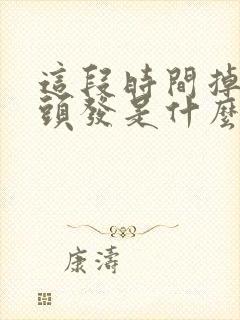 這段時間掉
頭發是什麼
康濤